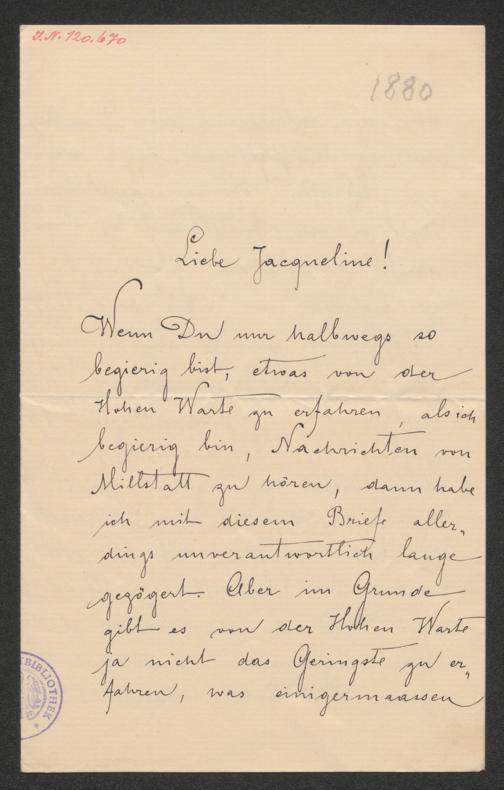 J.N. 120.670
1880
Liebe Jacqueline!
Wenn Du nur halbwegs so
begierig bist, etwas von der
Hohen Warte zu erfahren, als ich
begierig bin, Nachrichten von
Millstatt zu hören, dann habe
ich mit diesem Briefe aller-
dings unverantwortlich lange
gezögert. Aber im Grunde
gibt es von der Hohen Warte
ja nicht das Geringste zu er-
fahren, was einigermaassen
BIBLIOTHEK